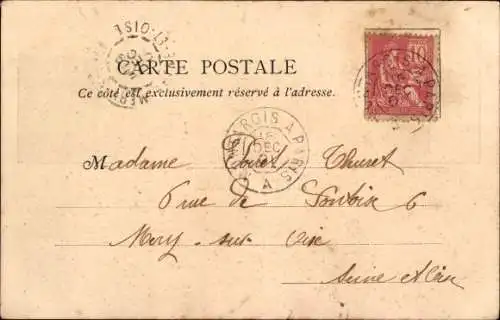 CARTE POSTALE
Ce côté est exclusivement réservé à l'adresse.
ARGIS A PARIS
15
DEC
A
Madame Thuret
6 rue de Pontoise 6
Mery-sur-Oise
Seine et Oise
ET-OISE
MERY
10